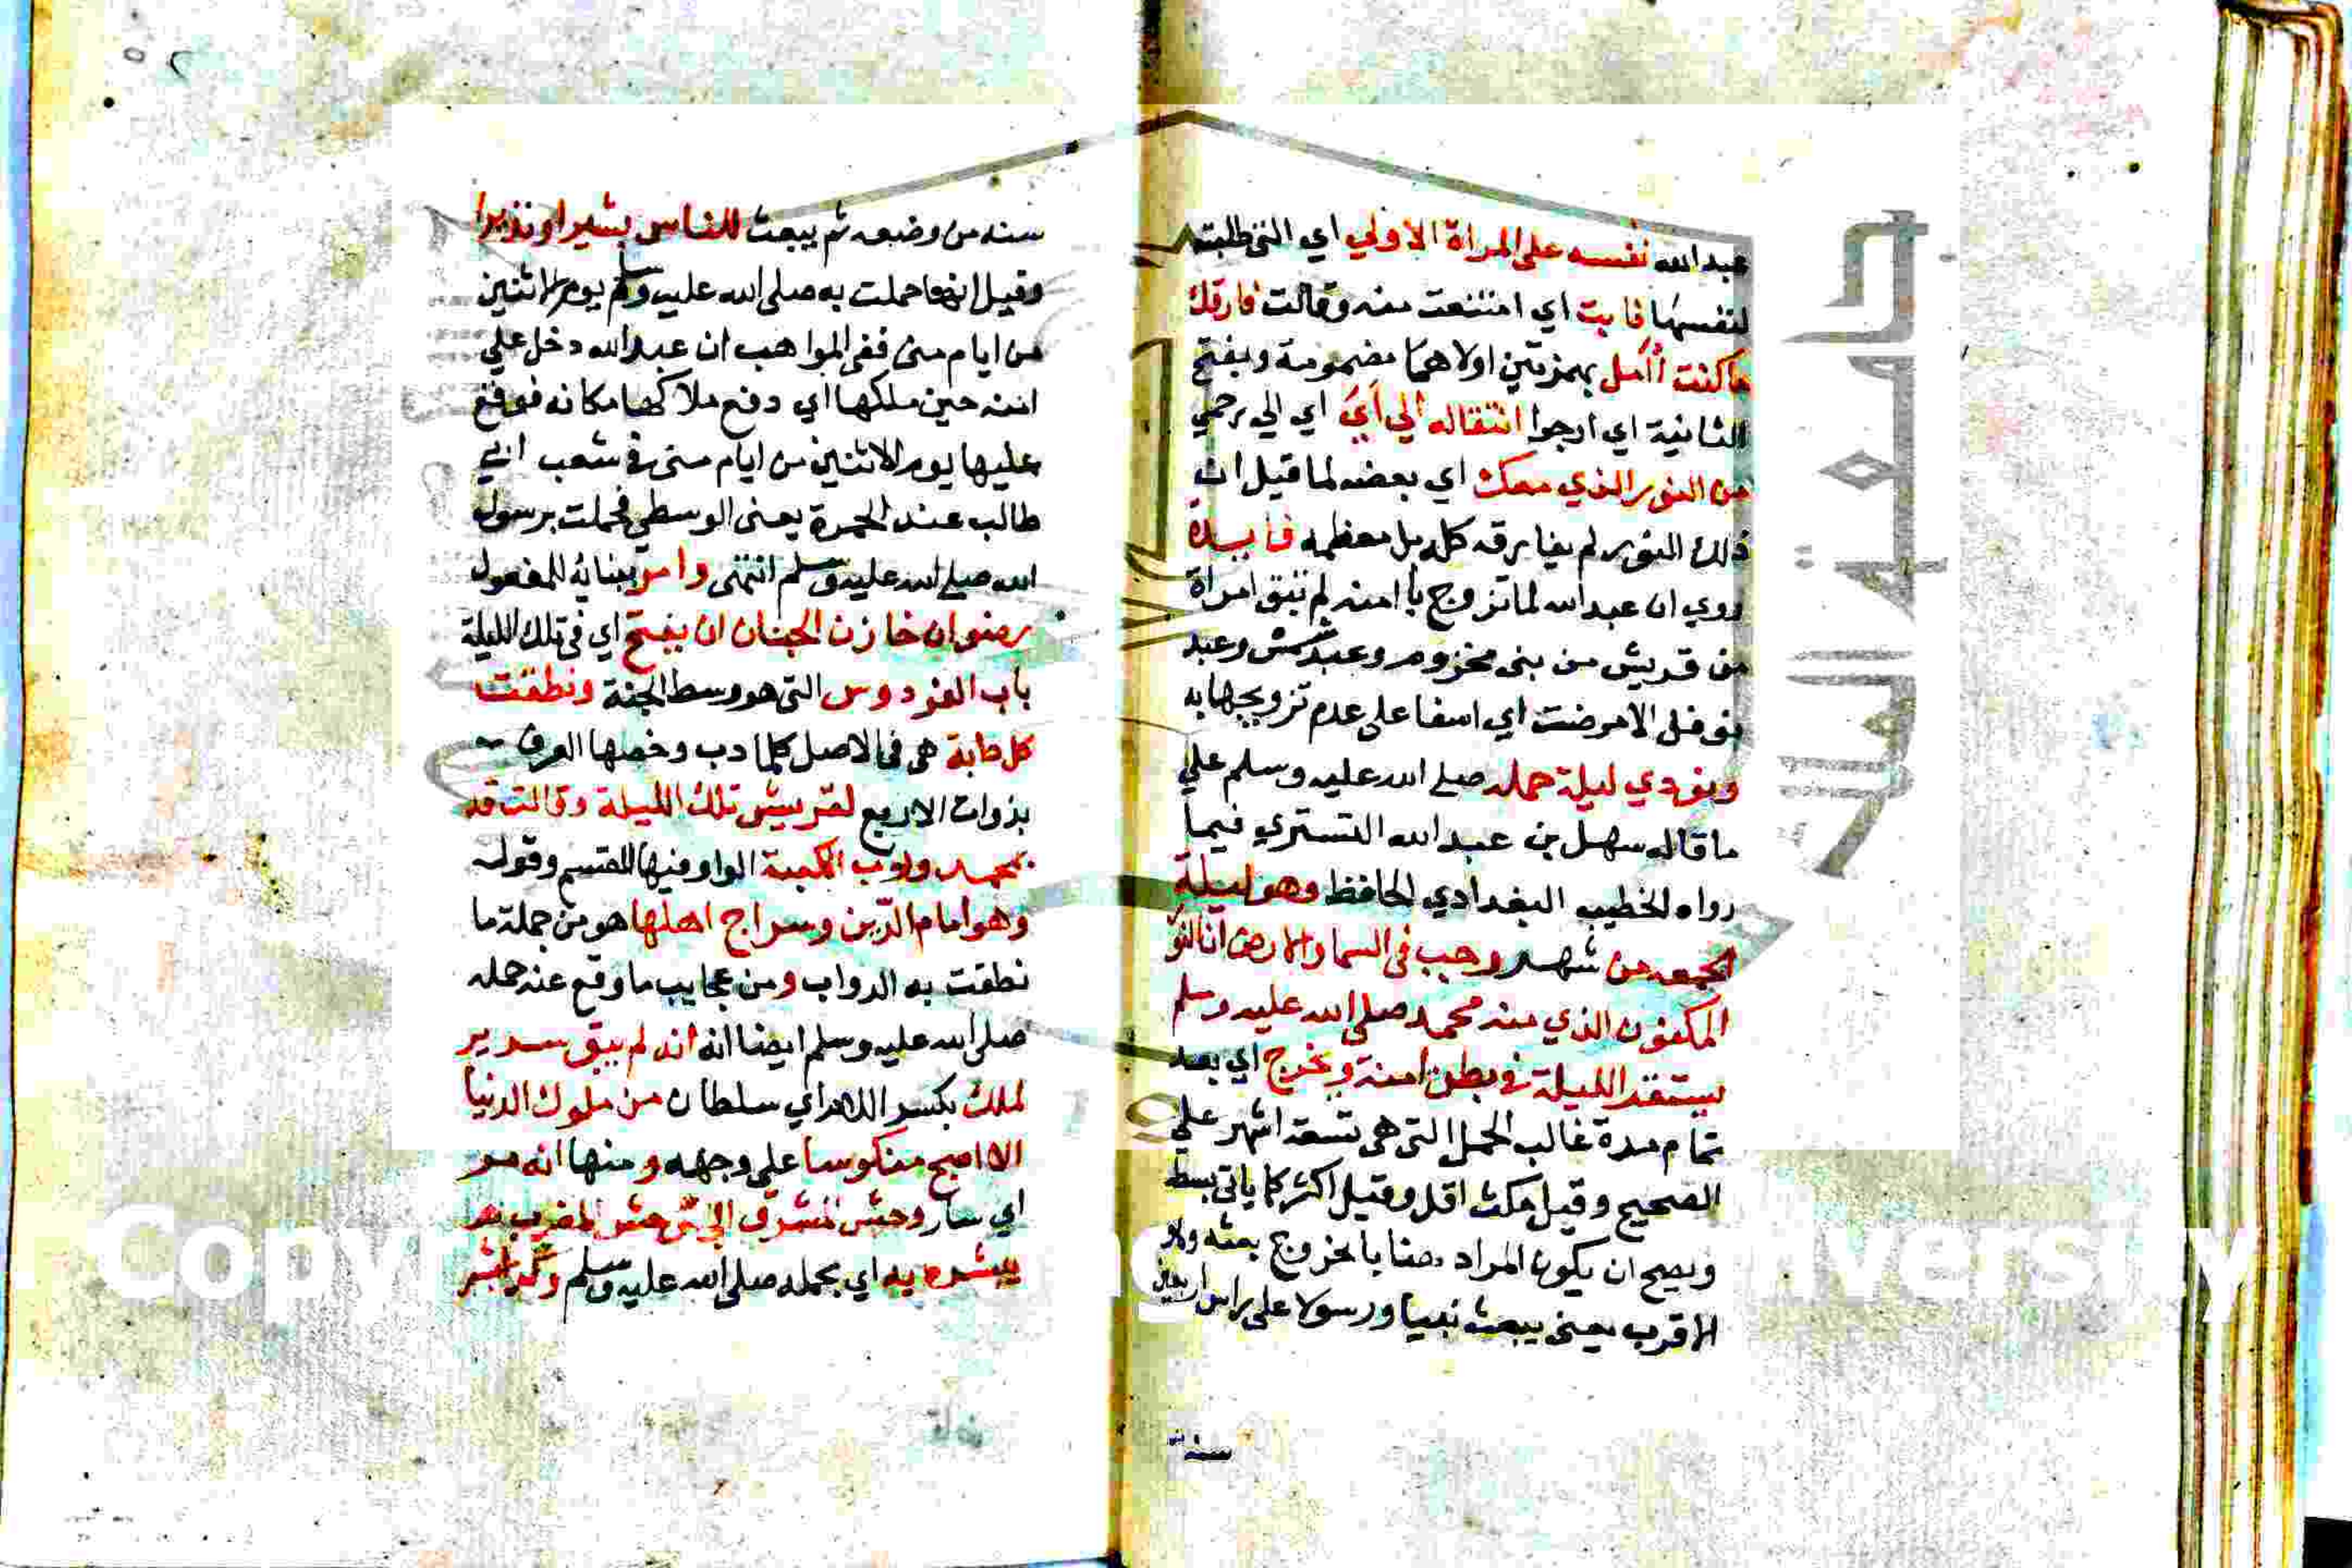 عبد الله نفسه على المراة الاولي اي التي طلبته
لنفسها فابت اي امتنعت منه وقالت فارقك
ما كنت أأمل بهمزتين اولاهما مضمومة وبفتح
الثانية اي ارجوا انتقاله الي أي اي الي رحمي
من النور الذي معك اي بعضه لما قيل ان
ذلك النور لم يفارقه كله بل معظمه فايدة
روي ان عبد الله لما تزوج بامنه لم تبق امراة
من قريش من بني مخزوم وعبد شمس وعبد
نوفل الا مرضت اي اسفا على عدم تزويجها به
ونودي ليلة حمله صلي الله عليه وسلم علي
ما قاله سهل بن عبد الله التستري فيما
رواه الخطيب البغدادي الحافظ وهو ليلة
الجمعه من شهر رجب في السما والارض ان النو
المكنون الذي منه محمد صلى الله عليه وسلم
يستقر الليلة في بطن امنة ويخرج اي بعد
تمام مدة غالب الحمل التي هي تسعة اشهر علي
الصحيح وقيل مكث اقل وقيل اكثر كما ياتي بسط
ويصح ان يكون المراد هنا بالخروج بعثه ولا
الاقرب يعني يبعث نبيا ورسولا على راس اربعين
سنة
سنه من وضعه ثم يبعث للناس بشيرا ونذيرا
وقيل انها حملت به صلى الله عليه وسلم يوم الاثنين
من ايام منى ففي المواهب ان عبد الله دخل علي
امنه حين ملكها اي دفع ملاكها مكانه فوقع
عليها يوم الاثنين من ايام منى في شعب ابي
طالب عند الجمرة يعنى الوسطي فحملت برسول
الله صلي الله عليه وسلم انتهى وامر ببنائه للمفعول
رضوان خازن الجنان ان يفتح اي في تلك الليلة
باب الفردوس التي هو وسط الجنة ونطقت
كل دابة هي في الاصل كلما دب وخصها العرف
بذوات الاربع لقريش تلك الليلة وقالت قد
بمحمد ورب الكعبة الواو فيها للقسم وقوله
وهو امام الدين وسراج اهلها هو من جملة ما
نطقت به الدواب ومن عجايب ما وقع عند حمله
صلى الله عليه وسلم ايضا انه انه لم يبق سرير
لملك بكسر اللام اي سلطان من ملوك الدنيا
الا اصبح منكوسا على وجهه ومنها انه مر
اي سار وحش المشرق الي وحش المغرب
يبشره به اي بحمله صلى الله عليه وسلم
جامعة الملك
Copy
versity